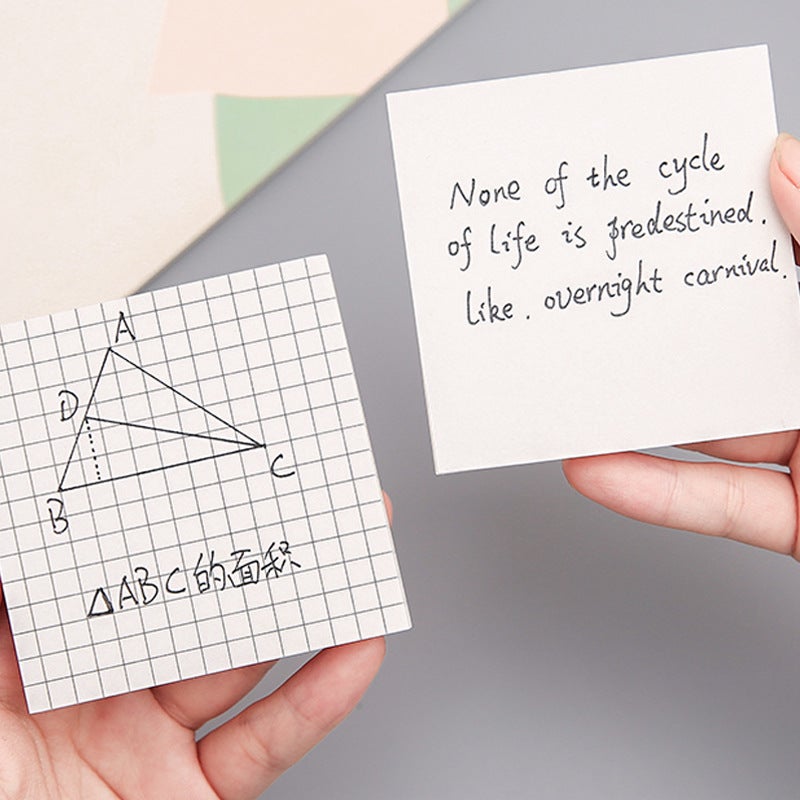 A
D
B
C
△ABC的面积
None of the cycle
of life is predestined.
like. overnight carnival.